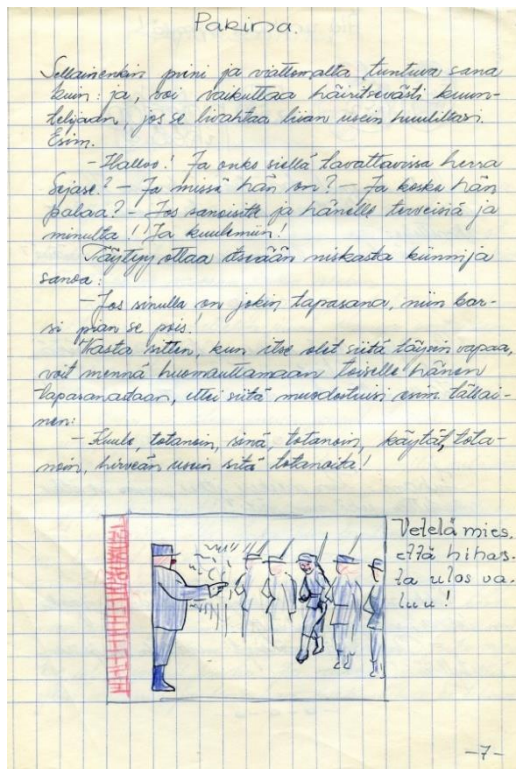 Pakina.
Sellainenkin pieni ja viattomalta tuntuva sana
kuin: ja, voi vaikuttaa häiritsevästi kuun-
telijaan, jos se livahtaa liian usein huulilta.
Esim.
- Halloo! Ja onko siellä tavattavissa herra
Sejase? - Ja missä hän on? - Ja koska hän
palaa? - Jos sanoisitte ja hänelle terveisiä ja
minulta!! Ja kuulemiin!
Täytyy ottaa itseään niskasta kiinni ja
sanoa:
- Jos sinulla on jokin tapasana, niin kar-
si pian se pois!
Vasta sitten, kun itse olet siitä täysin vapaa,
voit mennä huomauttamaan toiselle hänen
tapasanastaan, ettei siitä muodostuisi esim. tällai-
nen:
- Kuule, totanoin, sinä, totanoin, käytät, tota-
noin, hirveän usein sitä totanoita!
Vetelä mies.
että hihas.
ta ulos va.
luu!
-7-